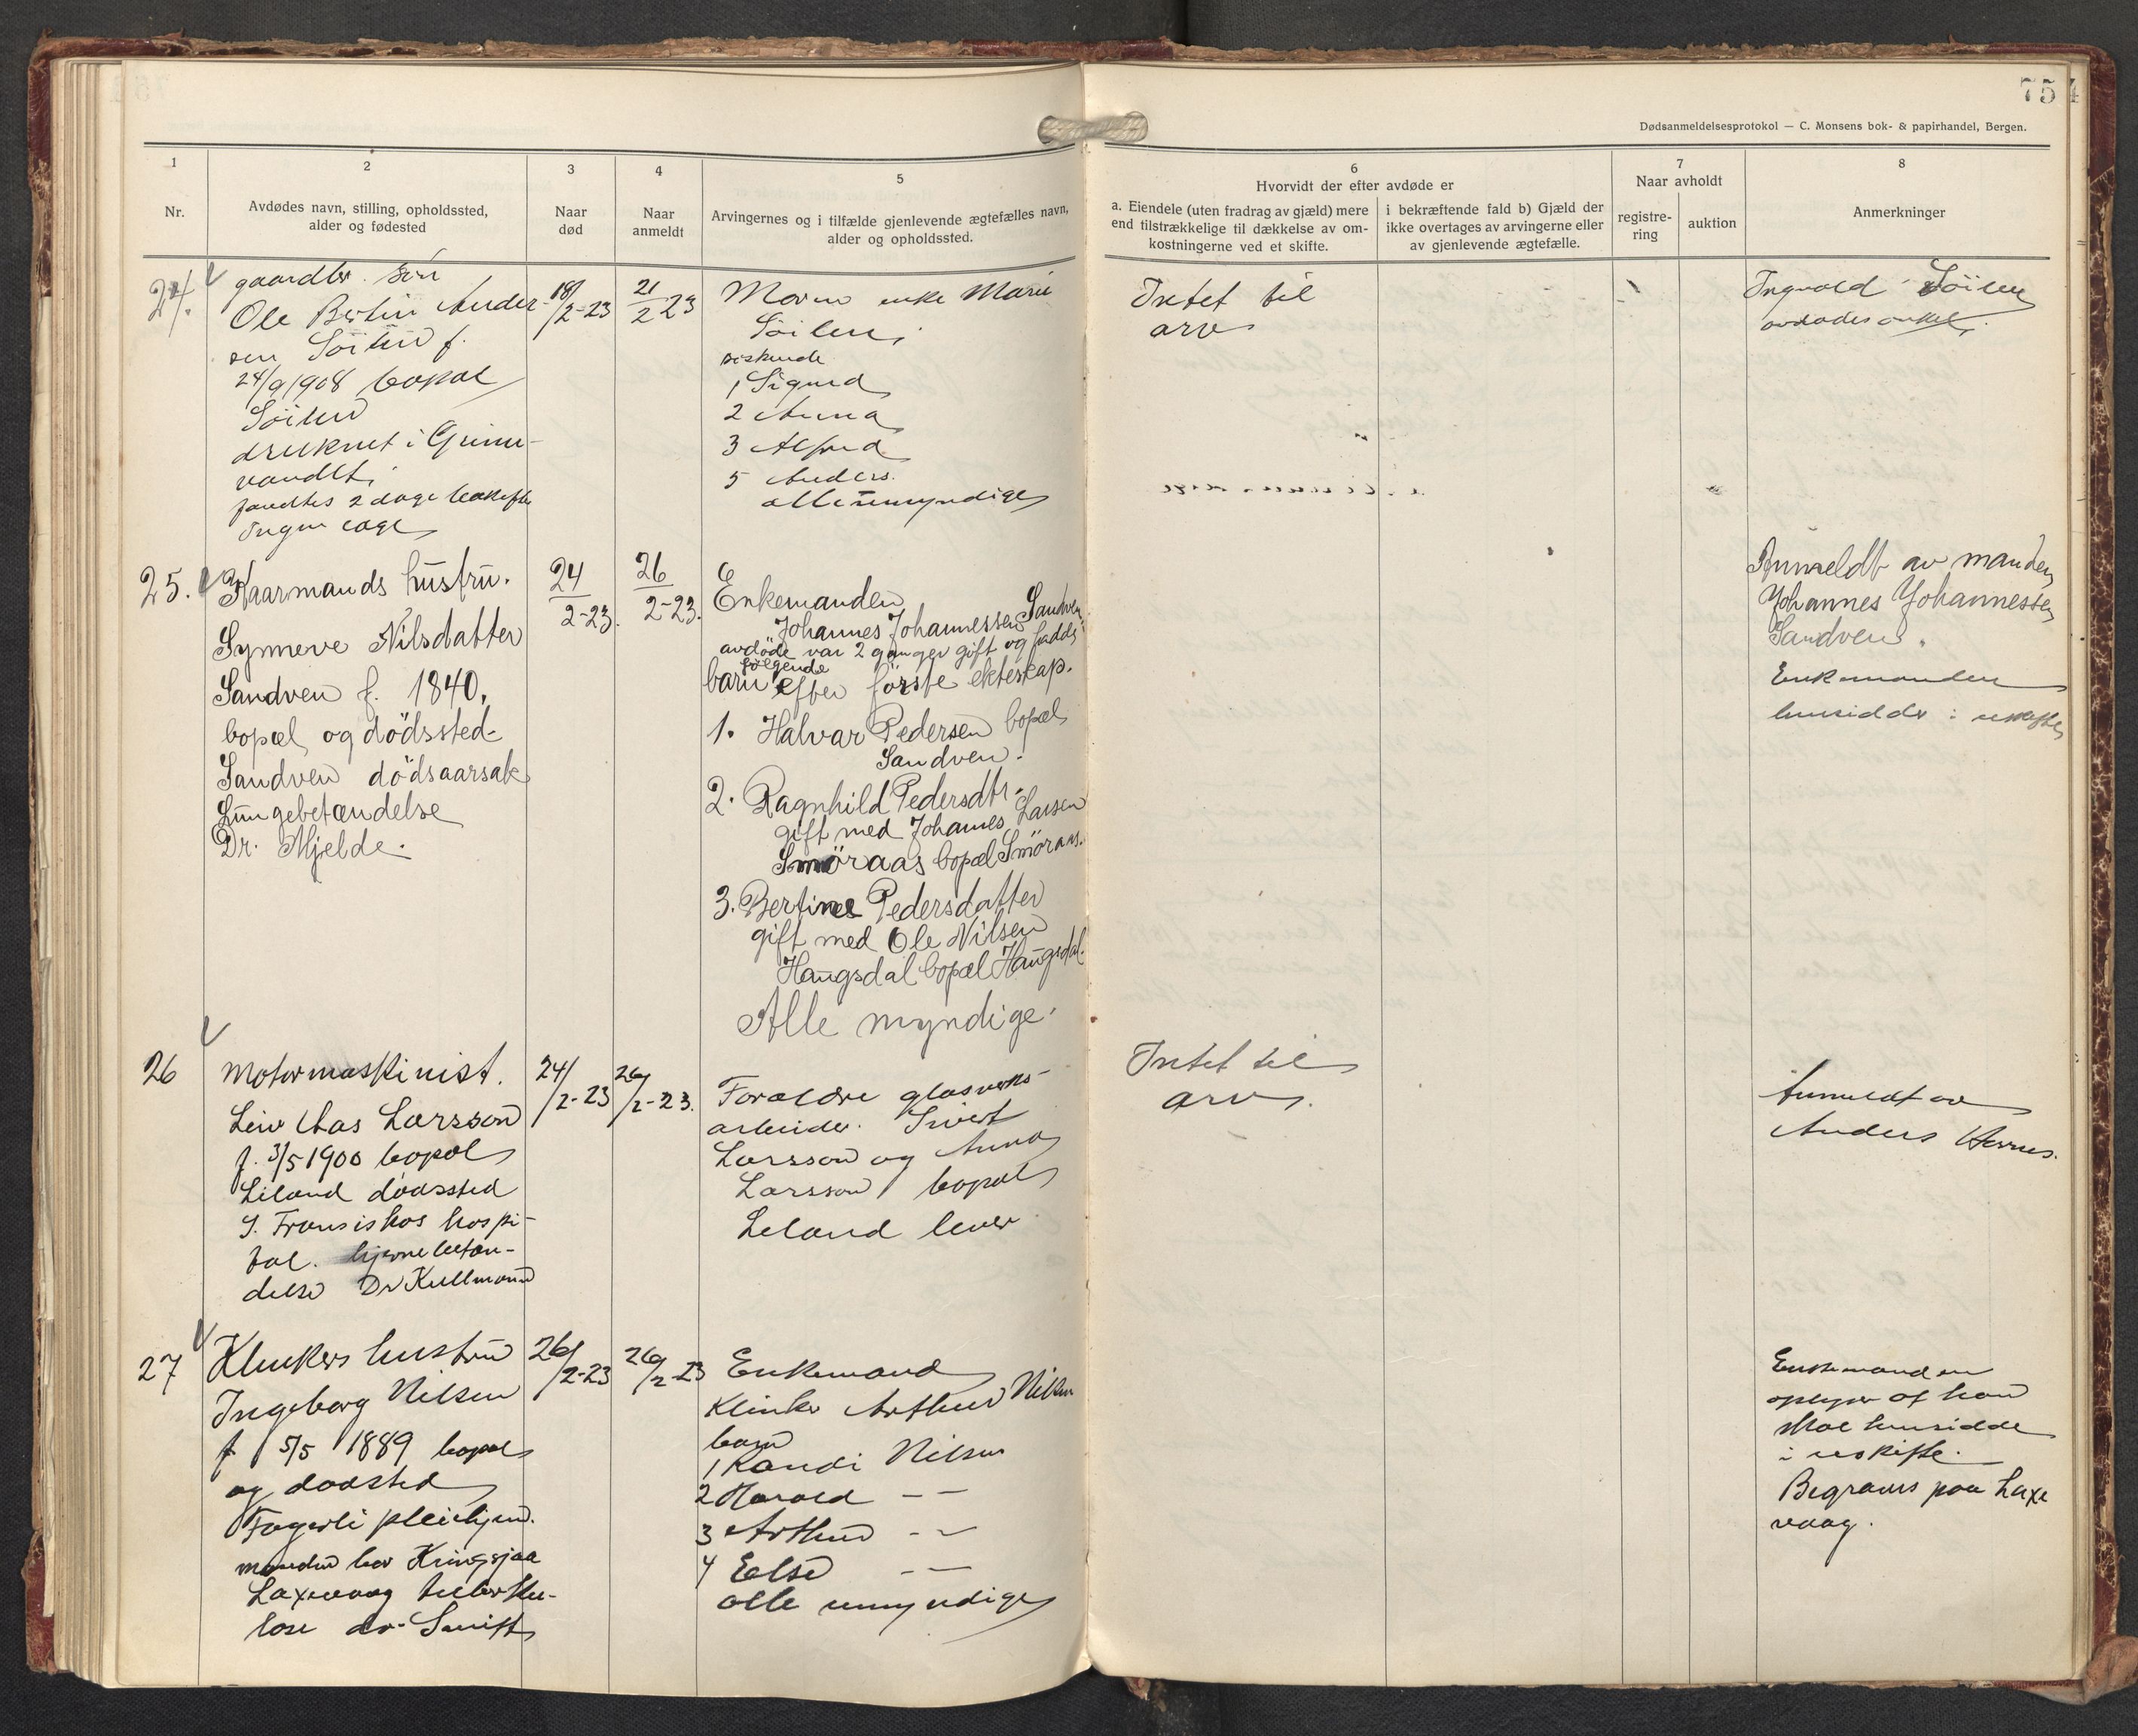 75
Dødsanmeldelsesprotokol — C. Monsens bok- & papirhandel, Bergen.
1
Nr.
2
Avdødes navn, stilling, opholdssted,
alder og fødested
3
Naar
død
4
Naar
anmeldt
5
Arvingernes og i tilfælde gjenlevende ægtefælles navn,
alder og opholdssted.
6
Hvorvidt der efter avdøde er
a. Eiendele (uten fradrag av gjæld) mere
end tilstrækkelige til dækkelse av om-
kostningerne ved et skifte.
i bekræftende fald b) Gjæld der
ikke overtages av arvingerne eller
av gjenlevende ægtefælle.
7
Naar avholdt
registre-
ring
auktion
8
Anmerkninger
24.
gaardbr. søn
Ole Bertin Ander-
sen Söilen f.
24/9 1908 bopæl
Söilen
druknet i Grim-
vandet,
fandtes 2 dage
Ingen læge
18/2-23
21/2 23
Moren enke Marie
Söilen,
siskende
1 Sigurd
2 Anna
3 Alfred
5 Anders.
alle umyndige
Intet til
arv
Ingvald Söilen
avdødes onkel.
25.
Kaarmands hustru.
Synneve Nilsdatter
Sandven f. 1840.
bopæl og dödssted
Sandven dödsaarsak
Lungebetændelse
Dr. Mjelde.
24/2-23.
26/2-23.
Enkemanden
Johannes Johannessen Sandven
avdöde var 2 ganger gift og hadde
følgende
barn efter förste ekteskap.
1. Halvar Pedersen bopæl
Sandven.
2. Ragnhild Pedersdtr.
gift med Johanes Larsen
Smöraas bopæl Smöraas.
3. Bertine Pedersdatter
gift med Ole Nilsen
Haugsdal bopæl Haugsdal.
Alle myndige.
Anmeldt av manden
Johannes Johannessen
Sandven.
Enkemanden
hensidder i uskifte
26
Motormaskinist.
Larsson
f. 3/5 1900 bopæl
Liland dødssted
S. Fransiskos hospi-
tal. hjernebetæn-
delse Dr Kullmann
24/2-23
26/2-23.
Forældre glasverks-
arbeider. Sivert
Larsson og Anna
Larsson bopæl
Leland lever
Intet til
arv.
Anmeldt av
Anders Hernes.
27
Klinkers hustru
Ingeborg Nilsen
f 5/5 1889 bopæl
og dødsted
Fagerli pleiehjem.
manden bor Kringsjaa
Laxevaag tuberku-
lose dr. Smitt
26/2-23
26/2-23
Enkemand
Klinker Arthur Nilsen
barn
1 Randi Nilsen
2 Harald — —
3 Arthur — —
4 Else — —
alle umyndige
Enkemanden
oplyser at han
skal hensidde
i uskifte.
Begraves paa Laxe
vaag.